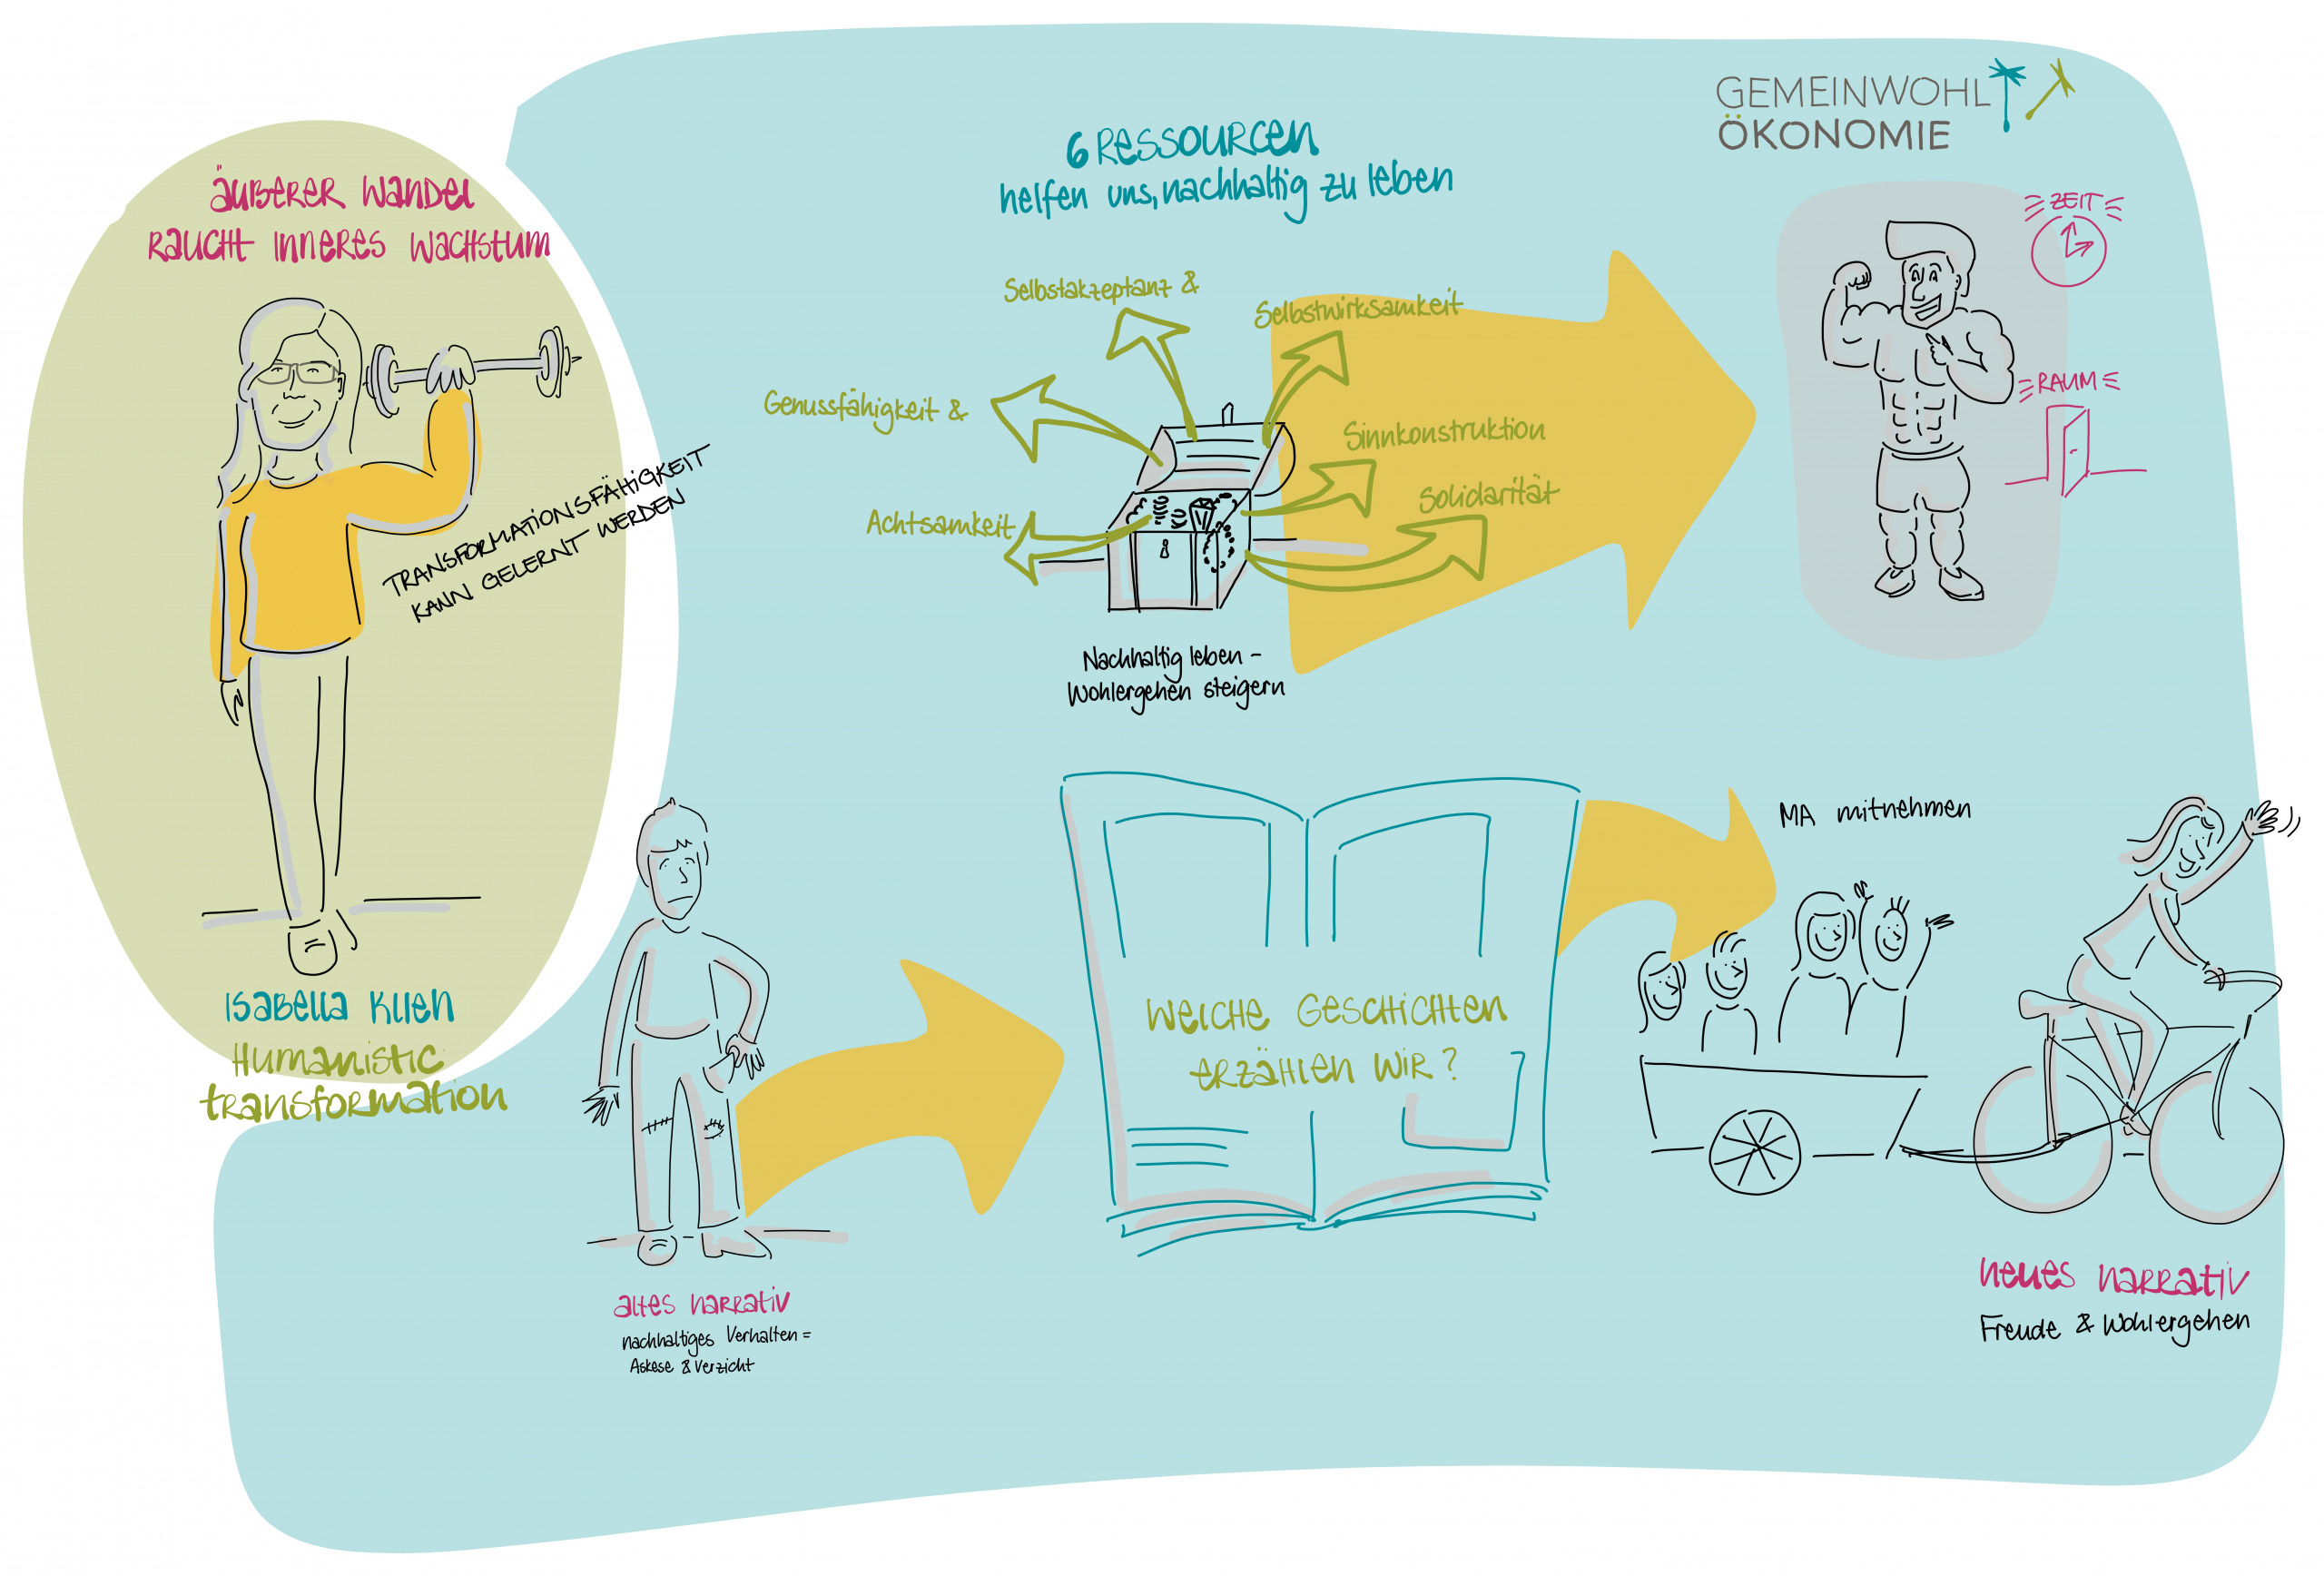 ÄUßERER WANDEL
RAUCHT INNERES WACHSTUM
TRANSFORMATIONSFÄHIGKEIT
KANN GELERNT WERDEN
ISABELLA KLIEN
HUMANISTIC
transformation
6 RESSOURCEN
helfen uns, nachhaltig zu leben
Selbstakzeptanz &
Selbstwirksamkeit
Genussfähigkeit &
Sinnkonstruktion
Solidarität
Achtsamkeit
Nachhaltig leben -
Wohlergehen steigern
GEMEINWOHL
ÖKONOMIE
ZEIT
RAUM
altes narrativ
nachhaltiges Verhalten =
Askese & Verzicht
WELCHE GESCHICHTEN
erzählen wir?
MA mitnehmen
neues narrativ
Freude & Wohlergehen